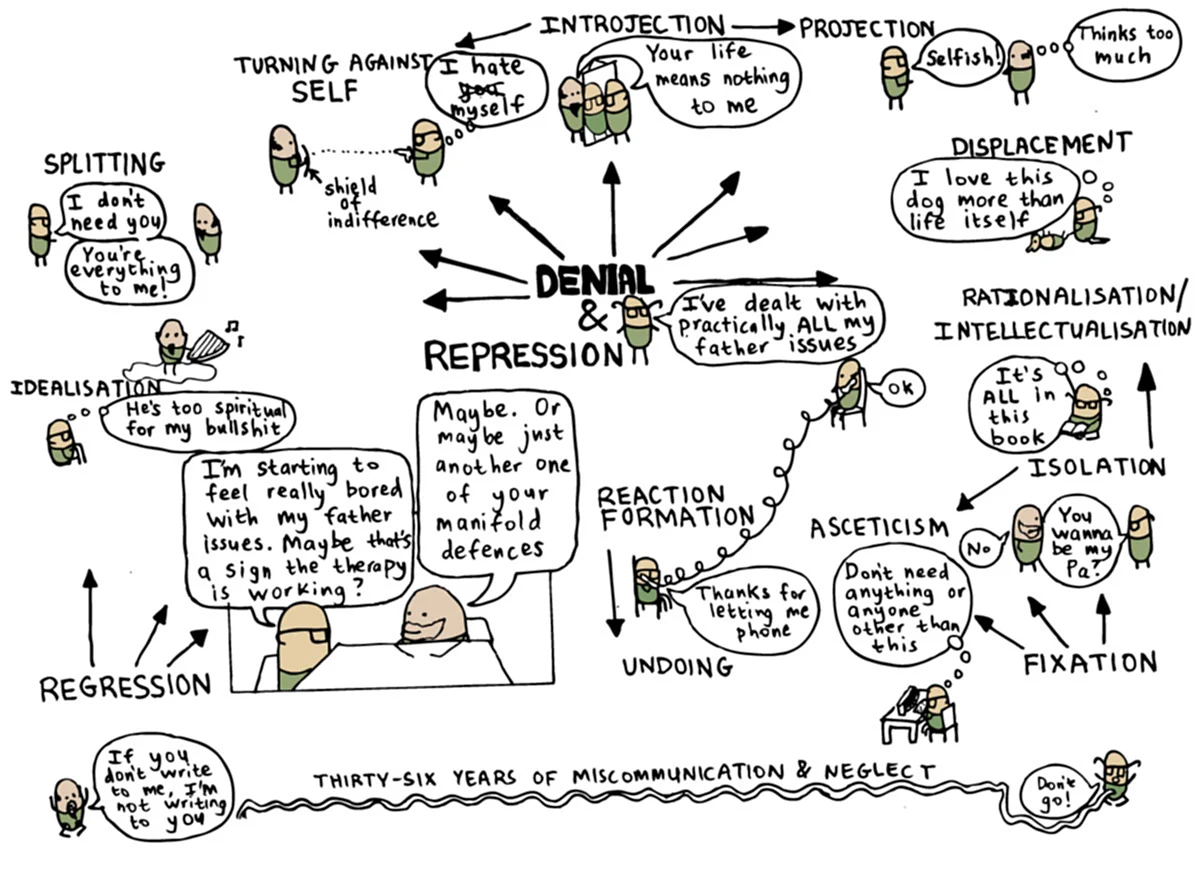 INTROJECTION
PROJECTION
Selfish!
Thinks too
much
TURNING AGAINST
SELF
I hate
you
myself
Your life
means nothing
to me
shield
of
indifference
SPLITTING
I don't
need you
You're
everything
to me!
DISPLACEMENT
I love this
dog more than
life itself
DENIAL
&
REPRESSION
I've dealt with
practically ALL my
father issues
OK
RATIONALISATION/
INTELLECTUALISATION
It's
ALL in
this
book
ISOLATION
IDEALISATION
He's too spiritual
for my bullshit
I'm starting to
feel really bored
with my father
issues. Maybe that's
a sign the therapy
is working?
Maybe. Or
maybe just
another one
of your
manifold
defences
REACTION
FORMATION
Thanks for
letting me
phone
UNDOING
ASCETICISM
Don't need
anything or
anyone
other than
this
No
You
wanna
be my
Pa?
FIXATION
REGRESSION
If you
don't write
to me, I'm
not writing
to you
THIRTY-SIX YEARS OF MISCOMMUNICATION & NEGLECT
Don't
go!